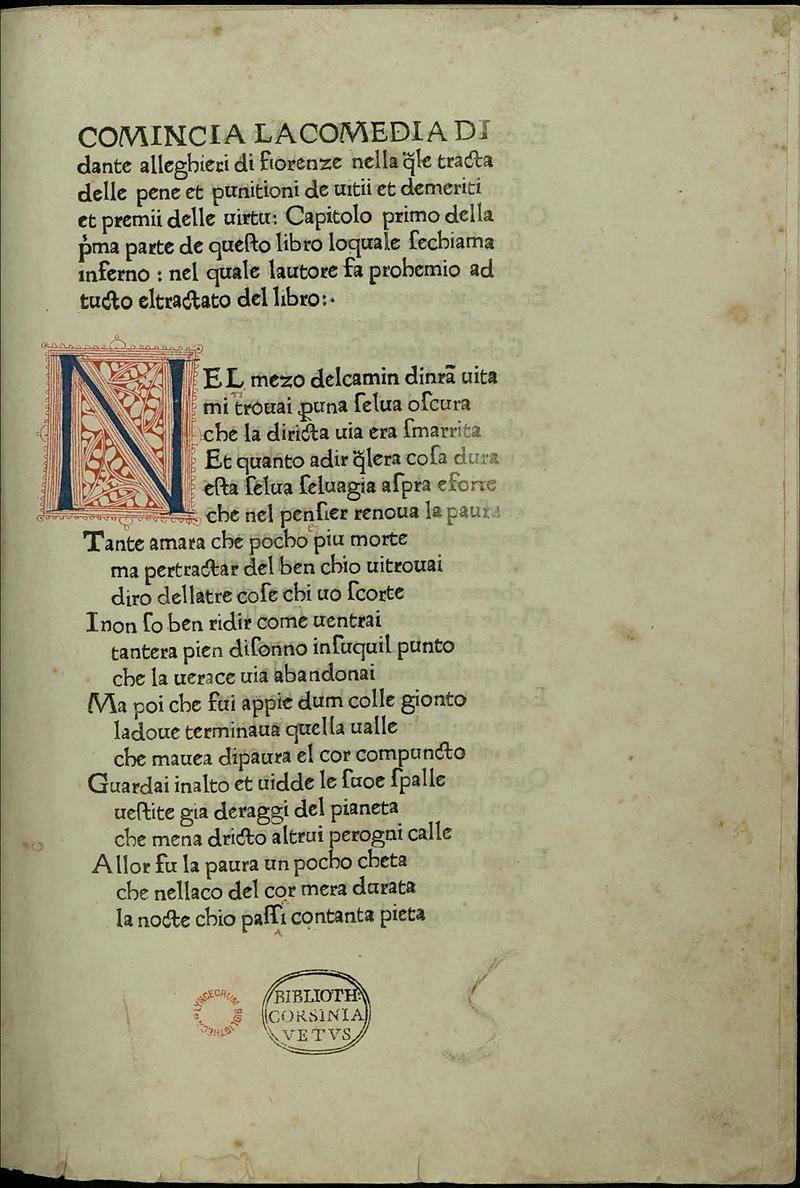 COMINCIA LACOMEDIA DI
dante alleghieri di fiorenze nella q̃le tracta
delle pene et punitioni de uitii et demeriti
et premii delle uirtu: Capitolo primo della
p̃ma parte de queſto libro loquale ſechiama
inferno : nel quale lautore fa probemio ad
tucto eltractato del libro:·
NEL mezo delcamin dinr̃a uita
mi trouai ꝑuna ſelua oſcura
che la diricta uia era ſmarrita
Et quanto adir q̃lera coſa dura
eſta ſelua ſeluagia aſpra eforte
che nel penſier renoua la paura
Tante amara che pocho piu morte
ma pertractar del ben chio uitrouai
diro dellatre coſe chi uo ſcorte
I non ſo ben ridir come uentrai
tantera pien diſonno inſuquil punto
che la uerace uia abandonai
Ma poi che fui appie dum colle gionto
ladoue terminaua quella ualle
che mauea dipaura el cor compuncto
Guardai inalto et uidde le ſuoe ſpalle
ueſtite gia deraggi del pianeta
che mena dricto altrui perogni calle
Allor fu la paura un pocho cheta
che nellaco del cor mera durata
la nocte chio paſſi contanta pieta
BIBLIOTH.
CORSINIA
VETVS
LYNCEORUM
BIBLIOTHECA